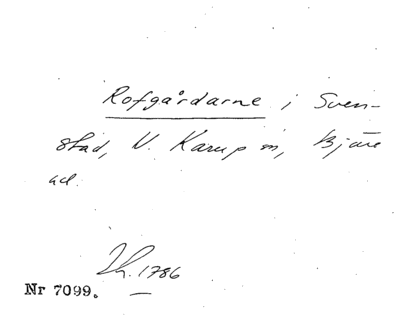 Rofgårdarne i Sven-
stad, V. Karup sn, Bjäre
hd.
Lh. 1786
Nr 7099.